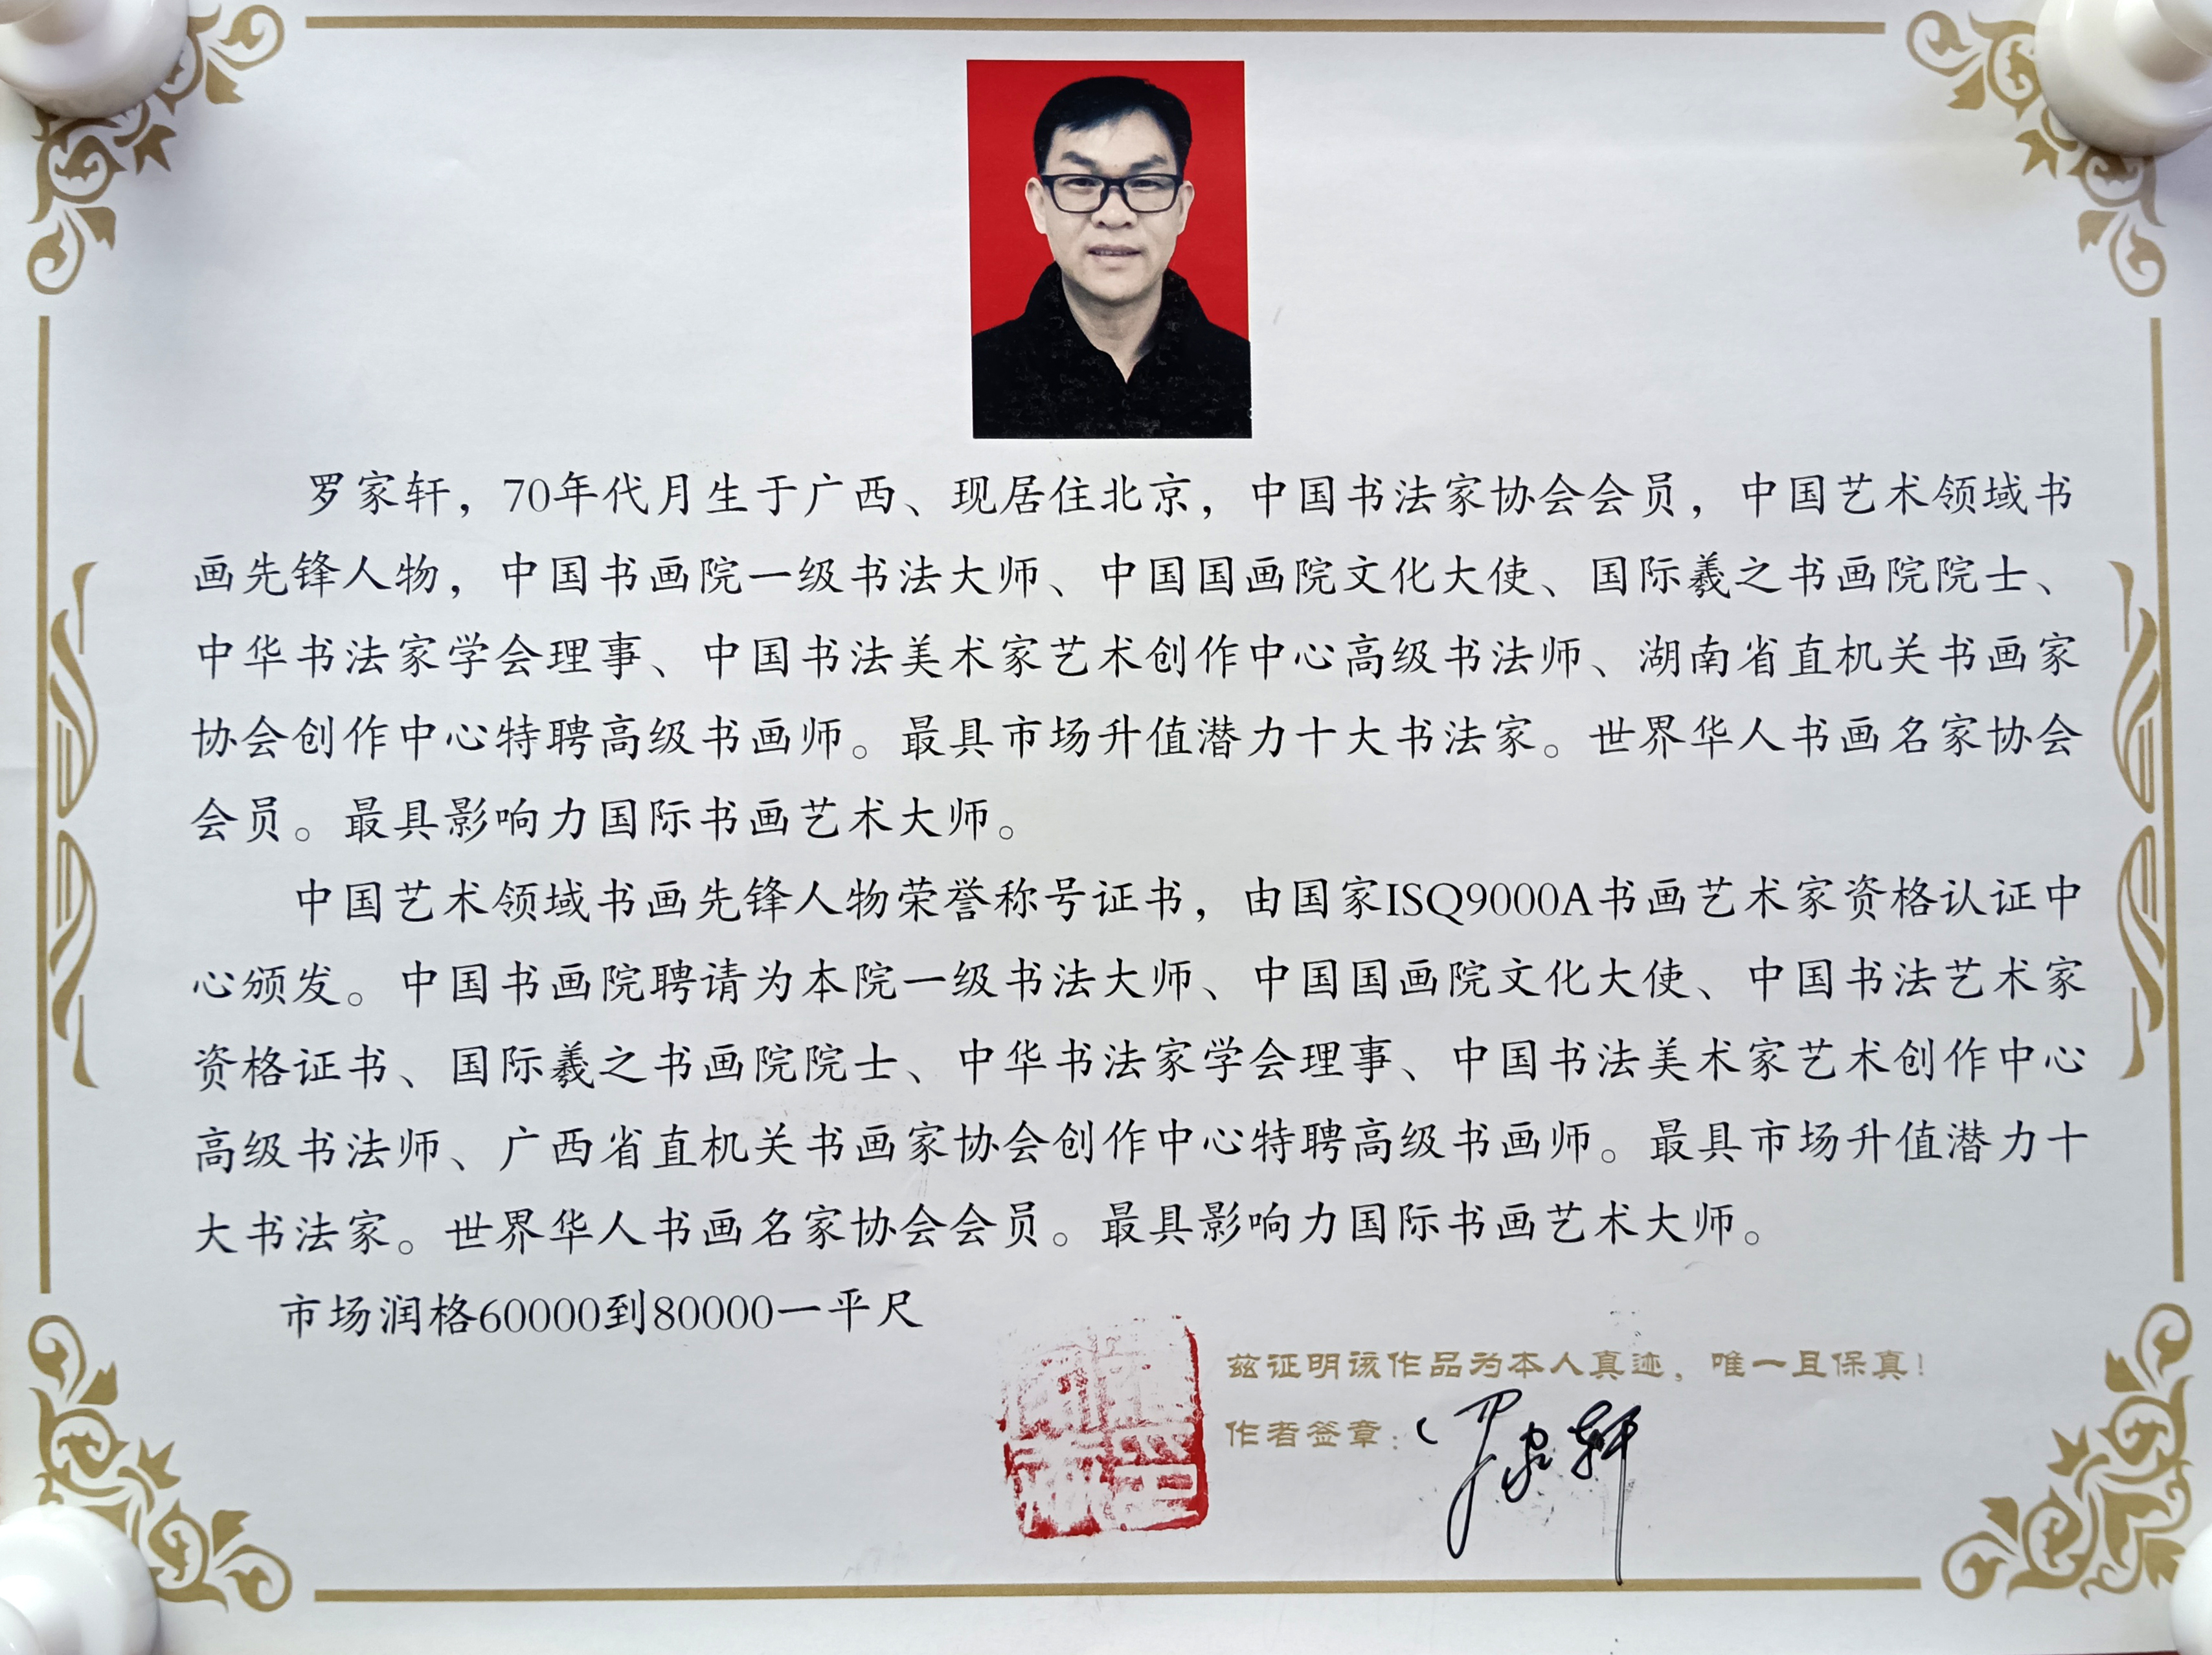 罗家轩，70年代月生于广西、现居住北京，中国书法家协会会员，中国艺术领域书
画先锋人物，中国书画院一级书法大师、中国国画院文化大使、国际羲之书画院院士、
中华书法家学会理事、中国书法美术家艺术创作中心高级书法师、湖南省直机关书画家
协会创作中心特聘高级书画师。最具市场升值潜力十大书法家。世界华人书画名家协会
会员。最具影响力国际书画艺术大师。
中国艺术领域书画先锋人物荣誉称号证书，由国家ISQ9000A书画艺术家资格认证中
心颁发。中国书画院聘请为本院一级书法大师、中国国画院文化大使、中国书法艺术家
资格证书、国际羲之书画院院士、中华书法家学会理事、中国书法美术家艺术创作中心
高级书法师、广西省直机关书画家协会创作中心特聘高级书画师。最具市场升值潜力十
大书法家。世界华人书画名家协会会员。最具影响力国际书画艺术大师。
市场润格60000到80000一平尺
兹证明该作品为本人真迹，唯一且保真！
作者签章：罗家轩